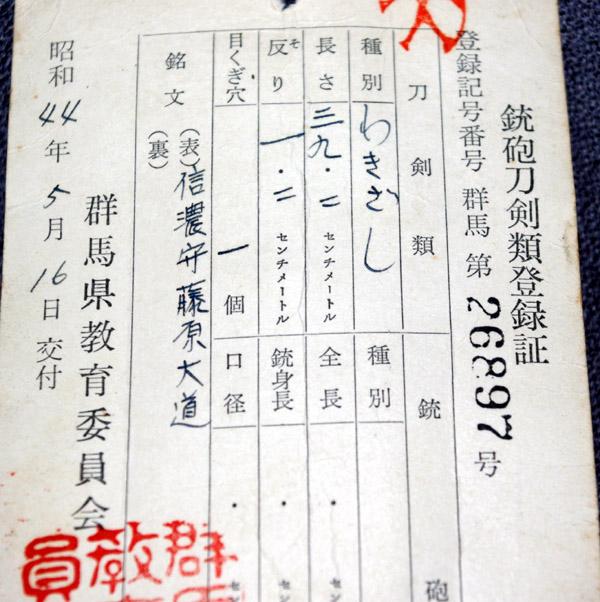 銃砲刀剣類登録証
登録記号番号 群馬 第 26897 号
刀剣類 銃砲
種別 わきざし 種別
長さ 三九・二 センチメートル 全長 ・ セン
反り そ 一・二 センチメートル 銃身長 ・ セン
目くぎ穴 一個 口径 ・ セ
銘文 (表) 信濃守藤原大道
(裏)
群馬県教育委員会
昭和 44 年 5 月 16 日 交付
群
教
員